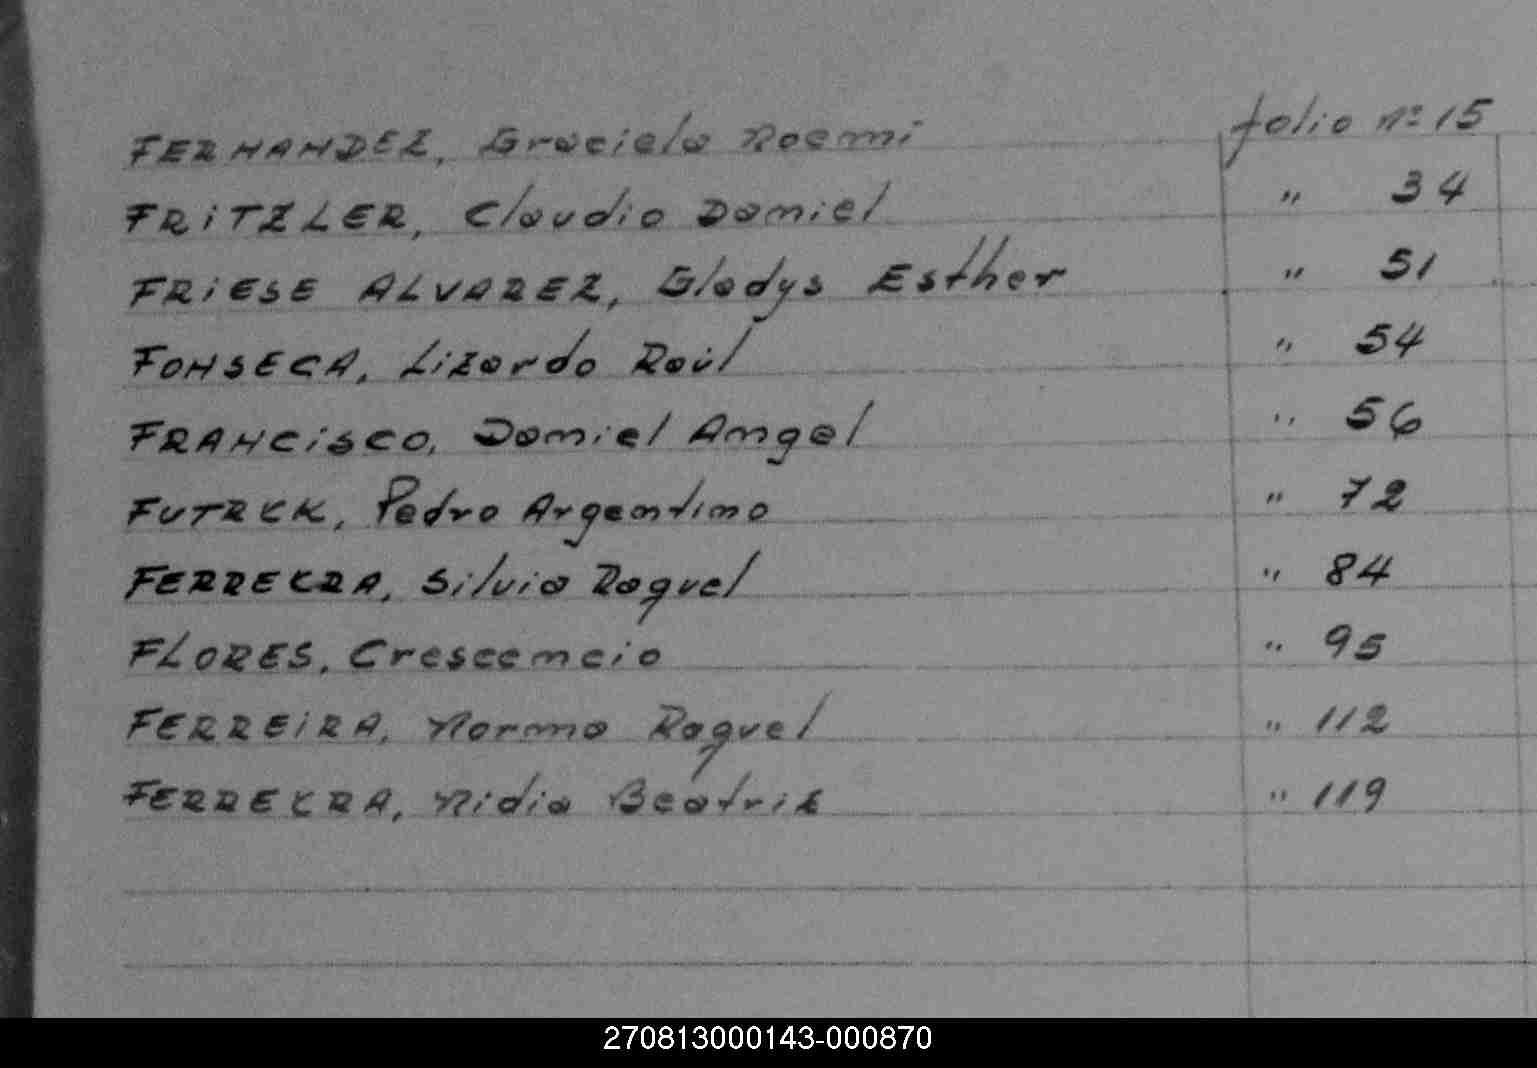 FERNANDEZ, Graciela Noemi folio nº 15
FRITZLER, Claudio Daniel " 34
FRIESE ALVAREZ, Gladys Esther " 51
FONSECA, Lizardo Raúl " 54
FRANCISCO, Daniel Angel " 56
Pedro Argentino " 72
FERREYRA, Silvia Raquel " 84
FLORES, Crescencio " 95
FERREIRA, Norma Raquel " 112
FERREYRA, Nidia Beatriz " 119
270813000143-000870